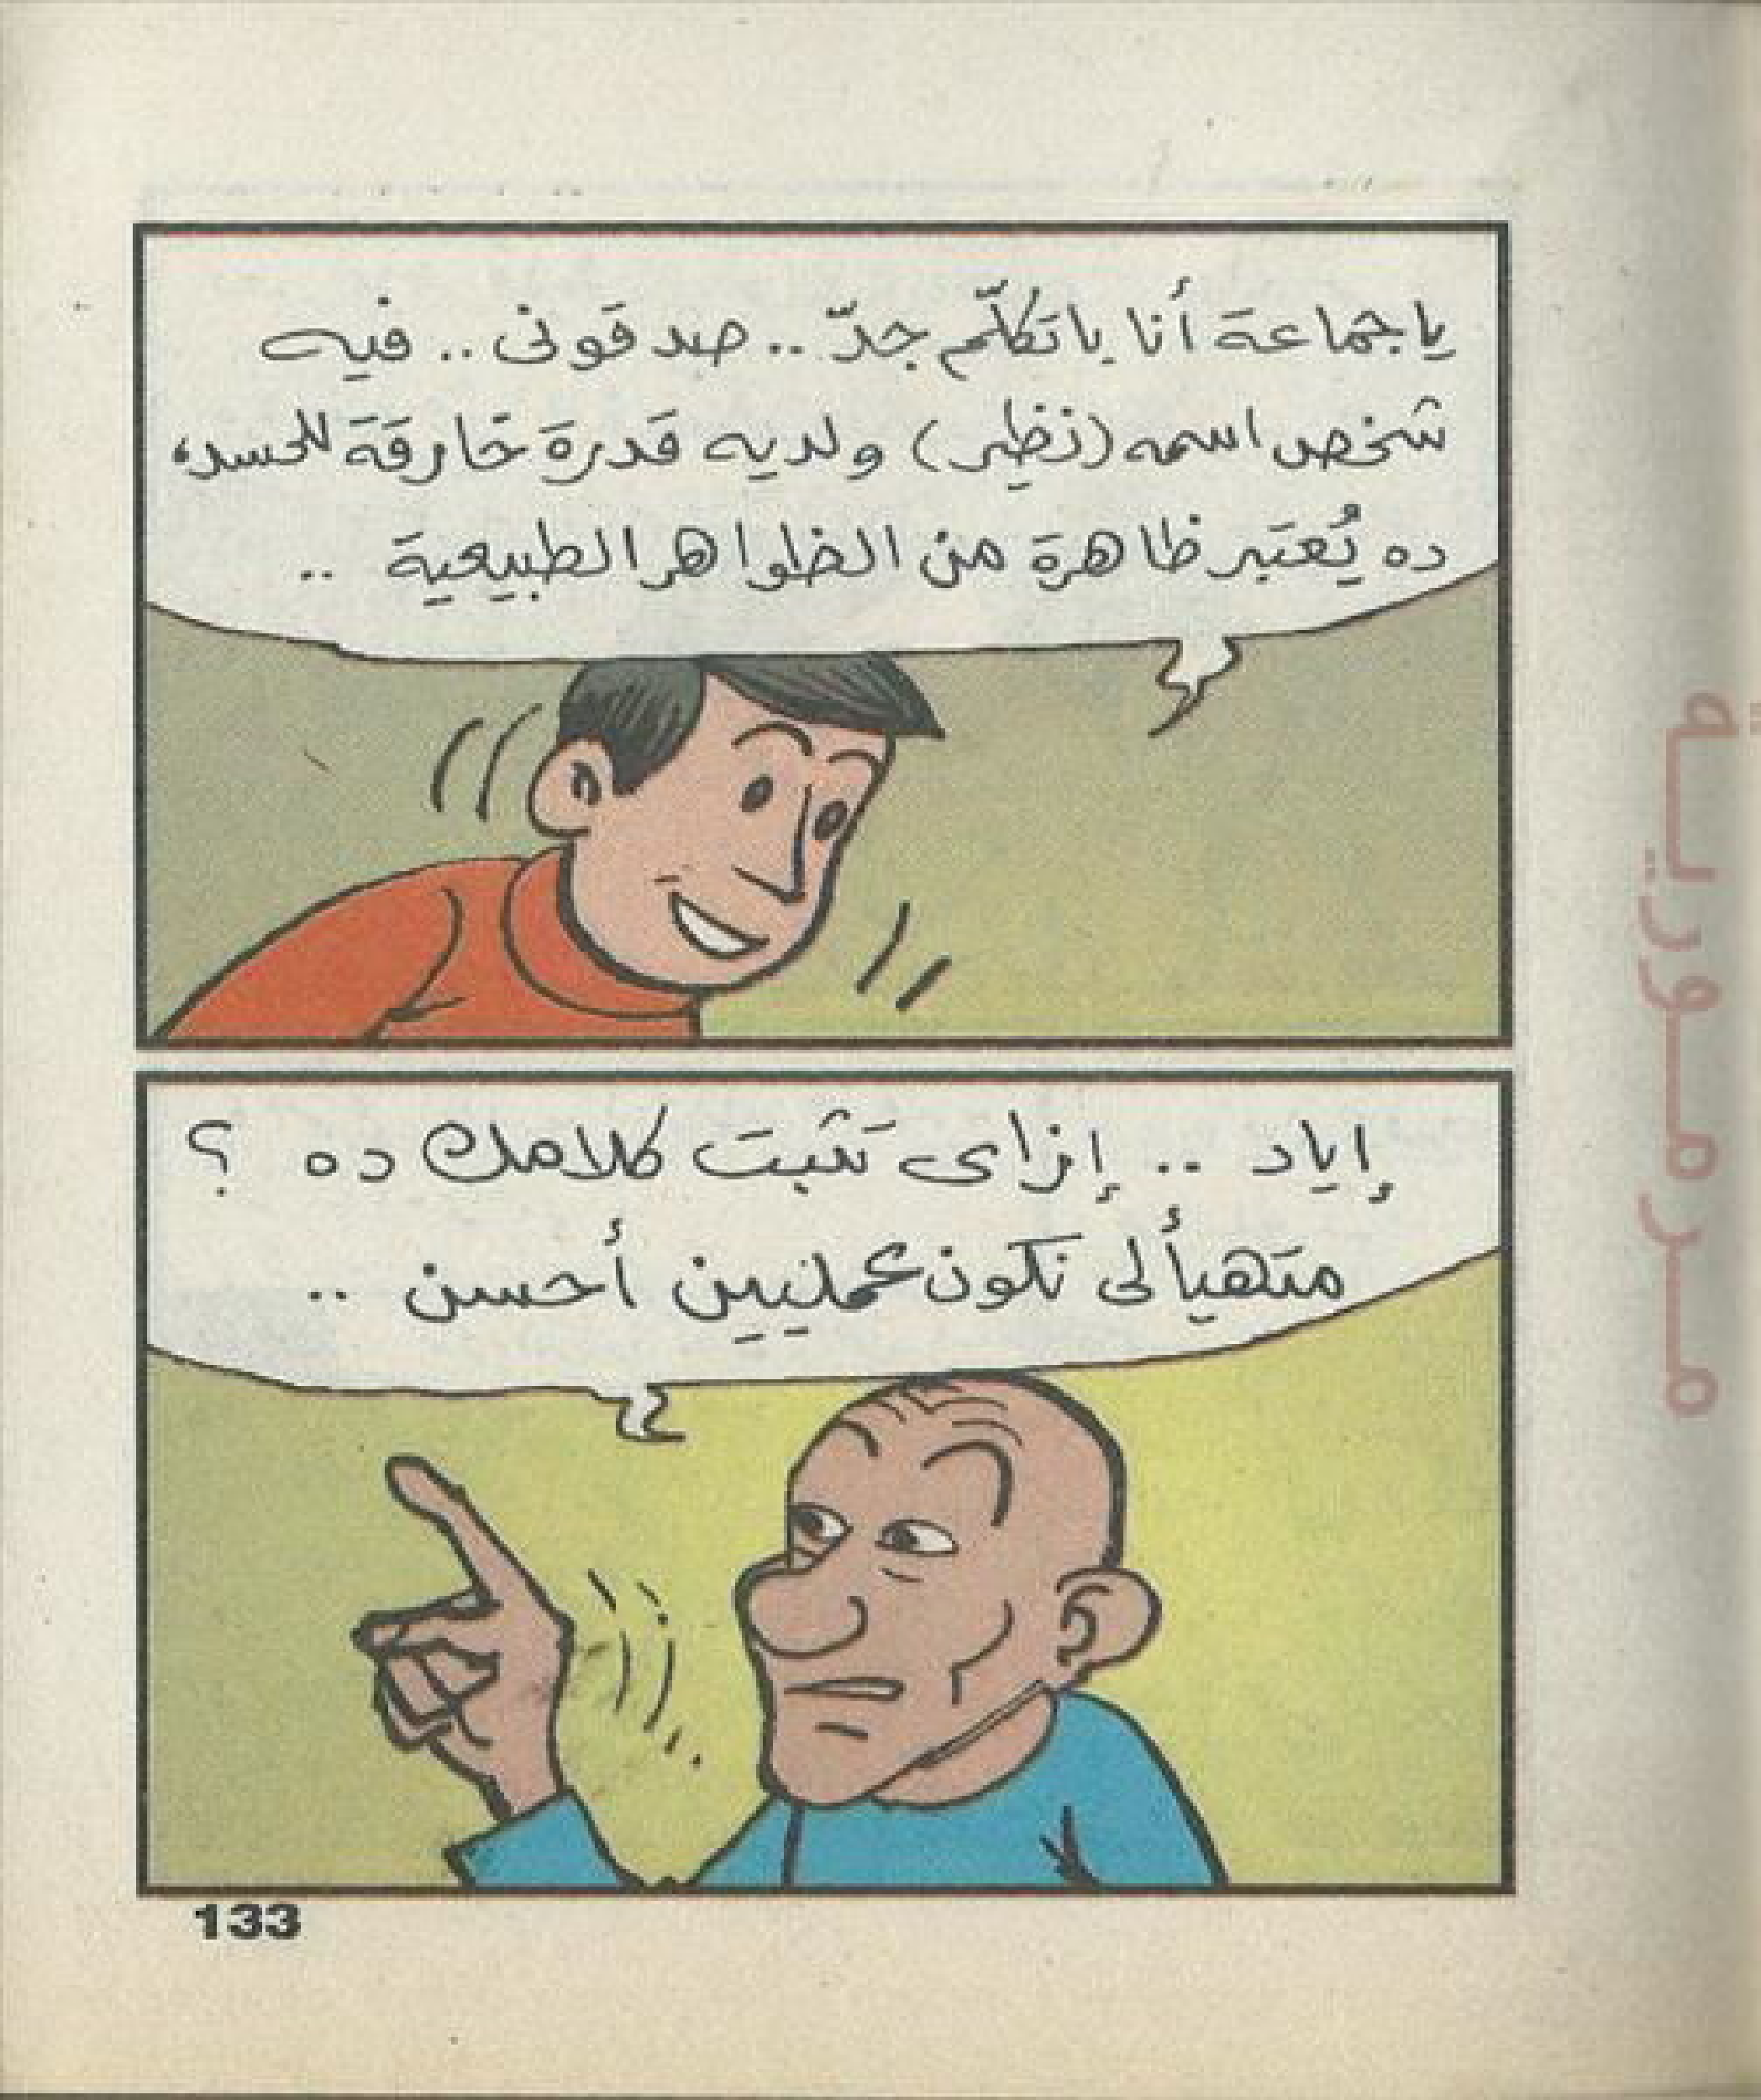 ياجماعة أنا باتكلّم جدّ .. صدقونى .. فيه
شخص اسمه (نظير) ولديه قدرة خارقة للحسد،
ده يُعتبر ظاهرة من الظواهر الطبيعية ..
إياد .. إزاى تثبت كلامك ده ؟
متهيألى نكون عمليين أحسن ..
133